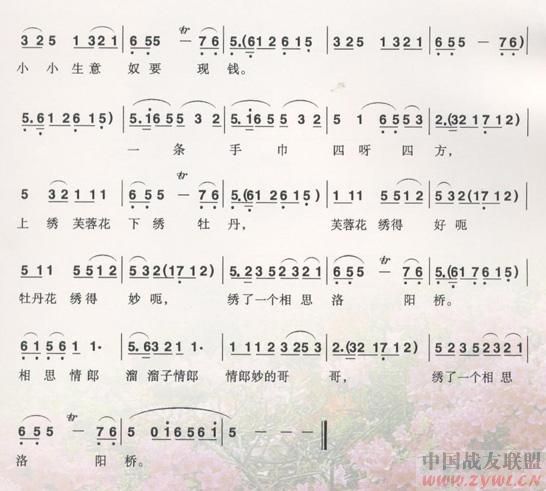 3 2 5 1 3 2 1 | 6 5 5 — 7 6 | 5.(6 1 2 6 1 5 | 3 2 5 1 3 2 1 | 6 5 5 — 7 6 )
小 小 生 意 奴 要 现 钱。
5. 6 1 2 6 1 5 ) | 5. 1 6 5 5 3 2 | 5. 1 6 5 5 3 2 | 5 1 6 5 5 3 | 2.(3 2 1 7 1 2 )
一 条 手 巾 四 呀 四 方，
5 3 2 1 1 1 | 6 5 5 — 7 6 | 5.(6 1 2 6 1 5 ) | 1 1 1 5 5 1 2 | 5 3 2 (1 7 1 2 )
上 绣 芙蓉花 下 绣 牡 丹， 芙蓉花 绣得 好 呃
5 1 1 5 5 1 2 | 5 3 2 (1 7 1 2 ) | 5. 2 3 5 2 3 2 1 | 6 5 5 — 7 6 | 5.(6 1 7 6 1 5 )
牡丹花 绣得 妙 呃， 绣了一个相思 洛 阳 桥。
6 1 5 6 1 1· | 5. 6 3 2 1 1· | 1 1 1 2 3 2 5 3 | 2.(3 2 1 7 1 2 ) | 5 2 3 5 2 3 2 1
相 思 情 郎 溜 溜子情郎 情郎妙的哥 哥， 绣了一个相思
6 5 5 — 7 6 | 5 0 1 6 5 6 1 | 5 — — ‖
洛 阳 桥。
中国战友联盟
www.ZYWL.CN